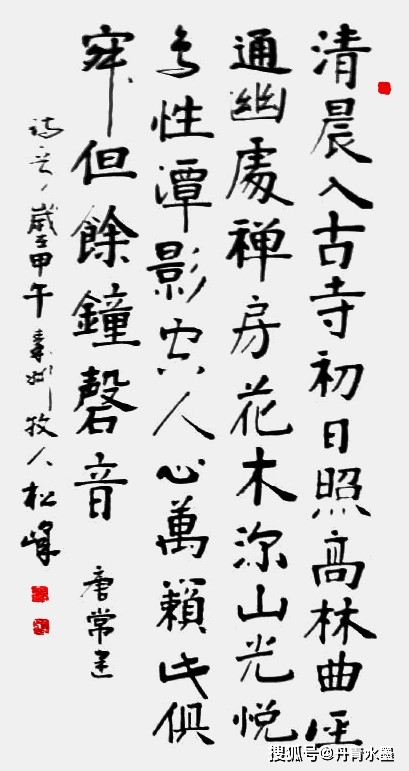 清晨入古寺初日照高林曲径
通幽處禅房花木深山光悦
鸟性潭影空人心萬籟此俱
寂但餘鐘磬音 唐常建
詩 歲在甲午 牧人松峰
搜狐号@丹青水墨